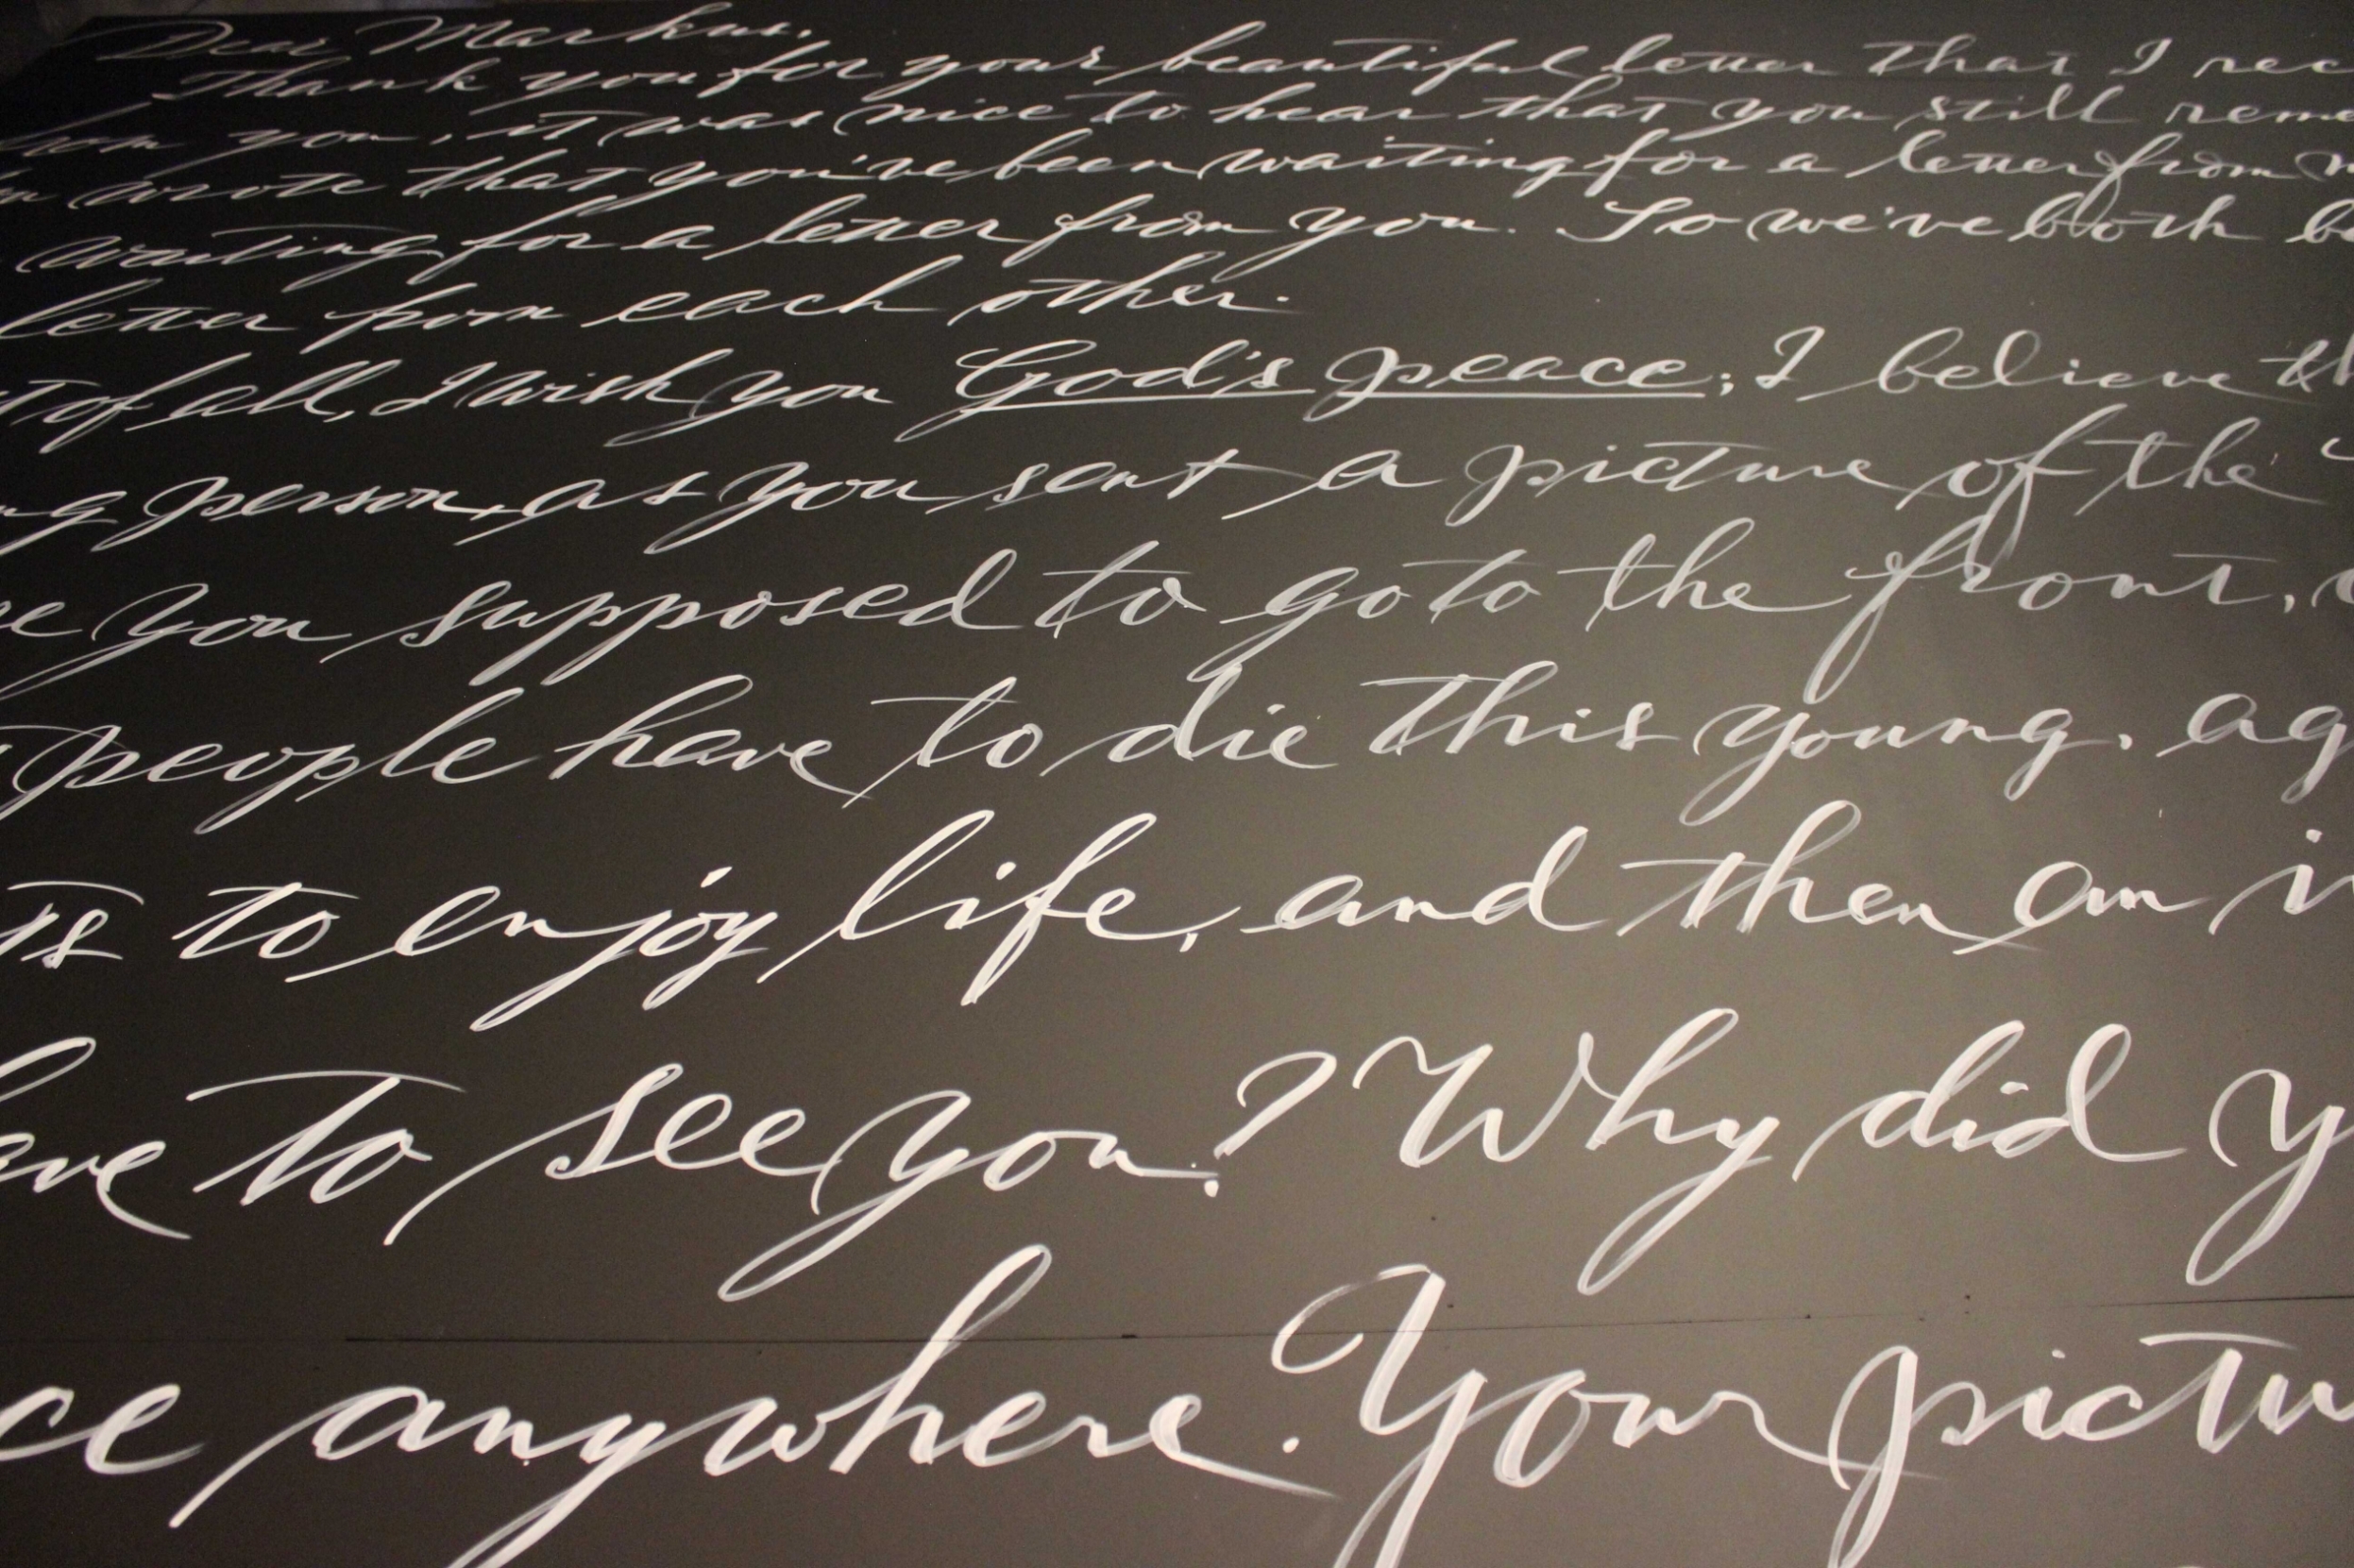 Dear Markus,
Thank you for your beautiful letter that I rec
from you, it was nice to hear that you still reme
wrote that you've been waiting for a letter from m
waiting for a letter from you. So we've both be
letter from each other.
t of all, I wish you God's peace; I believe th
ng person, as you sent a picture of the
re you supposed to go to the front,
people have to die this young. ag
ts to enjoy life, and then am i
ave to see you? Why did y
ce anywhere. Your pictu